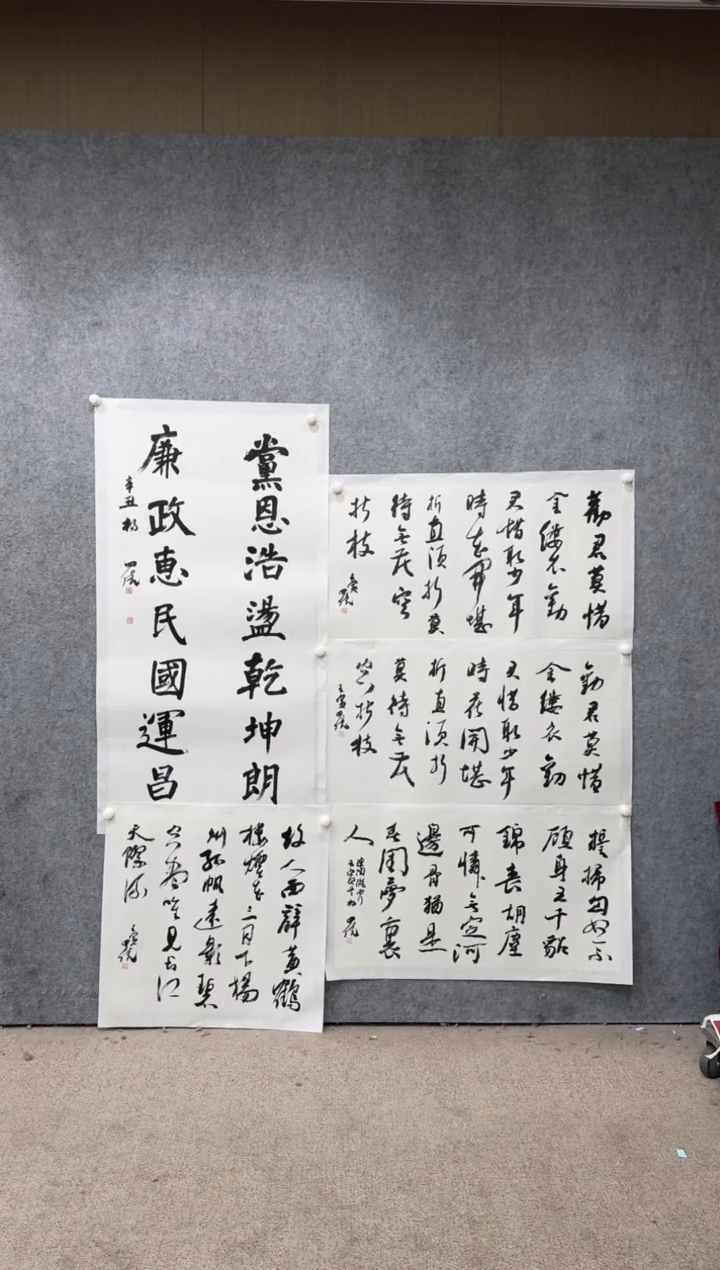 黨恩浩盪乾坤朗
廉政惠民國運昌
辛丑
勸君莫惜
金縷衣勸
君惜取少年
時花開堪
折直須折莫
待無花空
折枝
勸君莫惜
金縷衣勸
君惜取少年
時花開堪
折直須折
莫待無花
空折枝
故人西辭黃鶴
樓煙花三月下揚
州孤帆遠影碧
空盡唯見長江
天際流
誓掃匈奴不
顧身五千貂
錦喪胡塵
可憐無定河
邊骨猶是
春閨夢裏
人